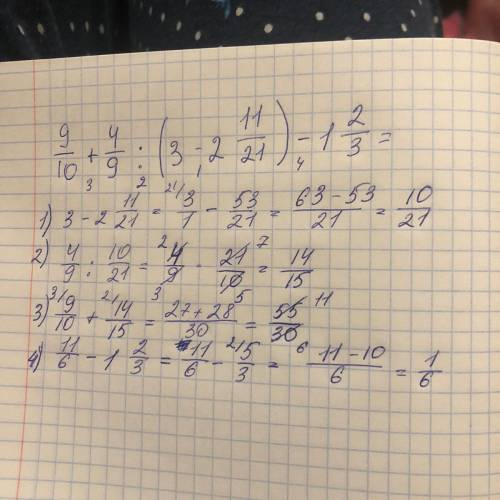 9/10 + 4/9 : (3 - 2 11/21) - 1 2/3 =
3 2 1 4
1) 3 - 2 11/21 = 21/ 3/1 - 53/21 = 63 - 53/21 = 10/21
2) 4/9 : 10/21 = 2 4/9 3 · 21/10 7 5 = 14/15
3) 3/ 9/10 + 2/ 14/15 = 27 + 28/30 = 55/30 11 6
4) 11/6 - 1 2/3 = 11/6 - 2/ 5/3 = 11 - 10/6 = 1/6